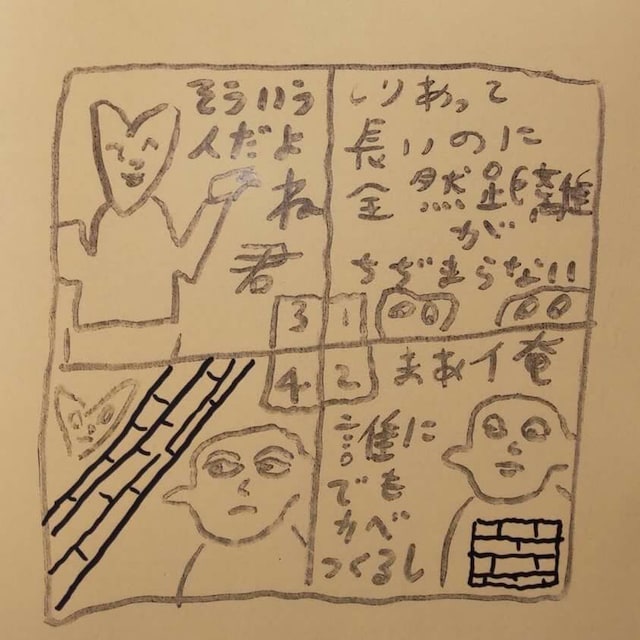 しりあって
長いのに
全然距離
が
ちぢまらない
1
2
まあ俺
誰に
でも
かべ
つくるし
そういう
人だよ
ね
君
3
4